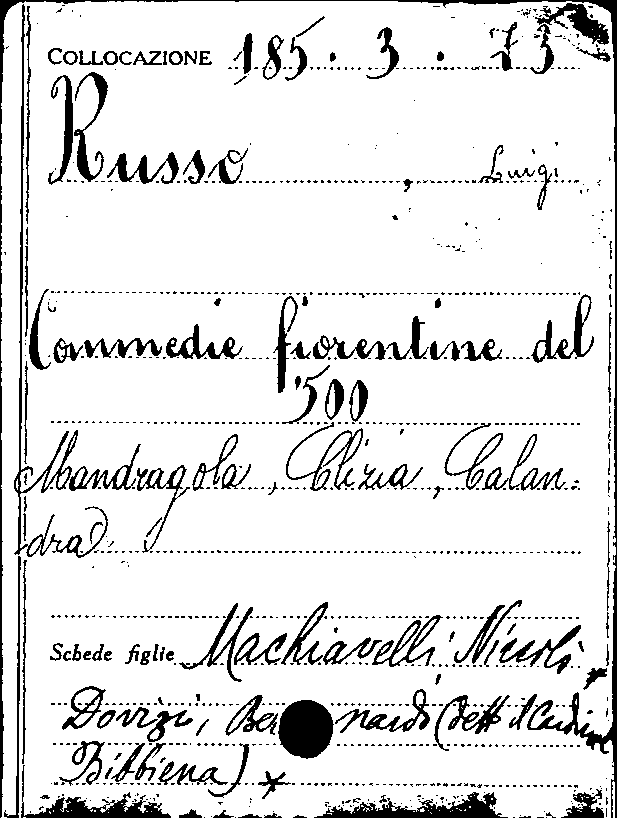 COLLOCAZIONE 185 . 3 . 73
Russo , Luigi
Commedie fiorentine del
'500
Mandragola, Clizia, Calan=
dra).
Schede figlie Machiavelli, Niccolò *
Dovizi, Bernardo (detto il Cardinal
Bibbiena) *